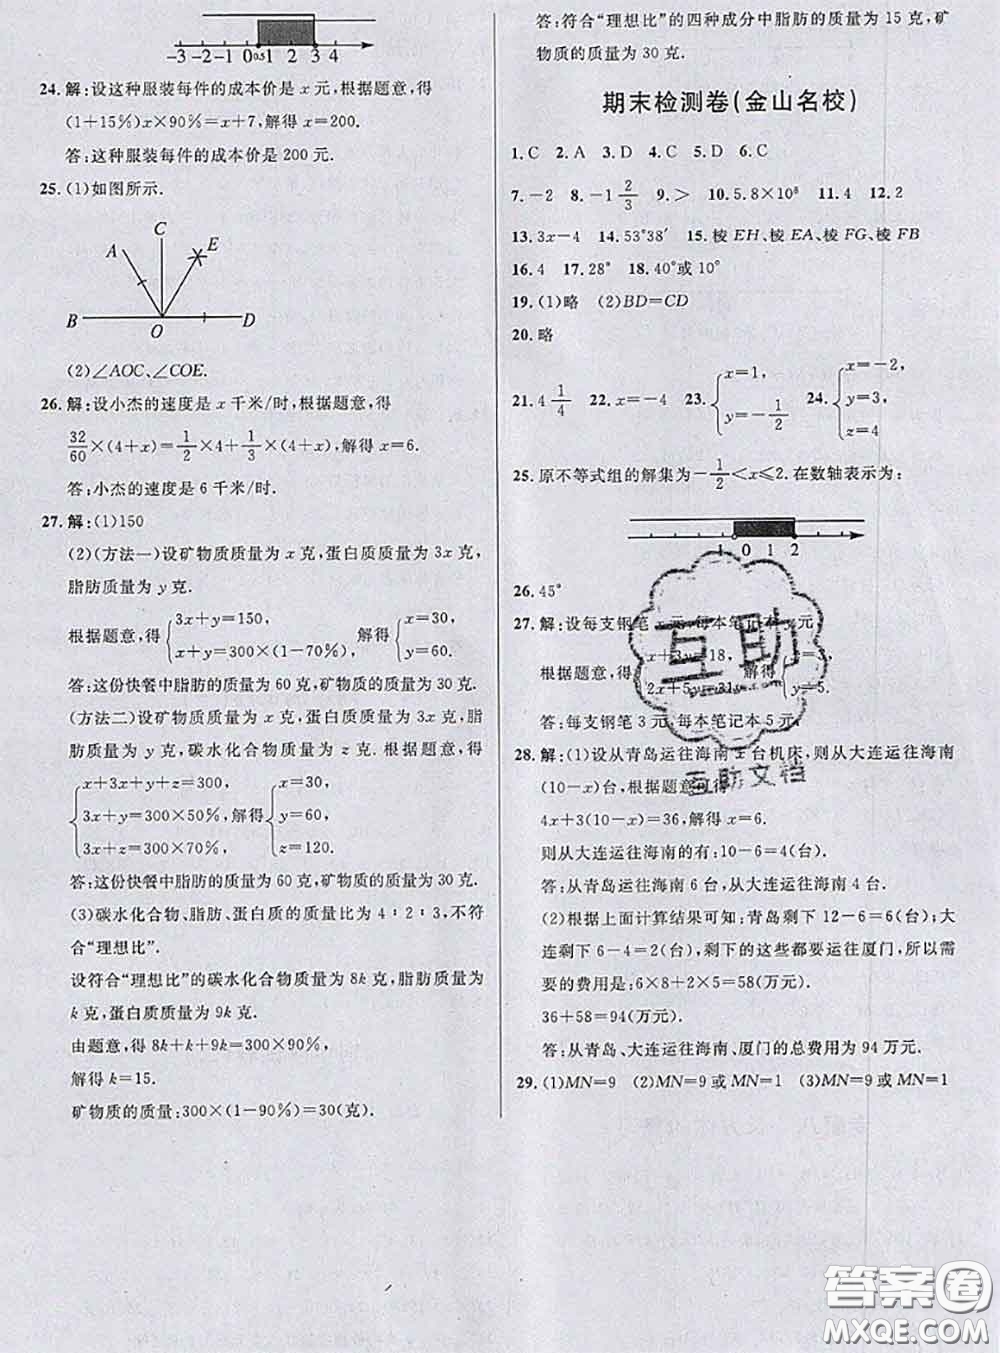 -3 -2 -1 0 0.5 1 2 3 4
24.解:设这种服装每件的成本价是 x 元,根据题意,得
(1+15%)x×90%=x+7,解得 x=200.
答:这种服装每件的成本价是 200 元.
25.(1)如图所示.
C
A
E
B
O
D
(2)∠AOC、∠COE.
26.解:设小杰的速度是 x 千米/时,根据题意,得
32/60×(4+x)=1/2×4+1/3×(4+x),解得 x=6.
答:小杰的速度是 6 千米/时.
27.解:(1)150
(2)(方法一)设矿物质质量为 x 克,蛋白质质量为 3x 克,
脂肪质量为 y 克.
根据题意,得{3x+y=150, x+y=300×(1-70%), 解得{x=30, y=60.
答:这份快餐中脂肪的质量为 60 克,矿物质的质量为 30 克.
(方法二)设矿物质质量为 x 克,蛋白质质量为 3x 克,脂
肪质量为 y 克,碳水化合物质量为 z 克.根据题意,得
{x+3x+y+z=300, 3x+y=300×50%, 3x+z=300×70%, 解得{x=30, y=60, z=120.
答:这份快餐中脂肪的质量为 60 克,矿物质的质量为 30 克.
(3)碳水化合物、脂肪、蛋白质的质量比为 4∶2∶3,不符
合“理想比”.
设符合“理想比”的碳水化合物质量为 8k 克,脂肪质量为
k 克,蛋白质质量为 9k 克.
由题意,得 8k+k+9k=300×90%,
解得 k=15.
矿物质的质量:300×(1-90%)=30(克).
答:符合“理想比”的四种成分中脂肪的质量为 15 克,矿
物质的质量为 30 克.
期末检测卷(金山名校)
1.C 2.A 3.D 4.C 5.D 6.C
7.-2 8.-1 2/3 9.> 10.5.8×10⁸ 11.4 12.2
13.3x-4 14.53°38′ 15.棱 EH、棱 EA、棱 FG、棱 FB
16.4 17.28° 18.40°或 10°
19.(1)略 (2)BD=CD
20.略
21.4 1/4 22.x=-4 23.{x=1, y=-1/2 24.{x=-2, y=3, z=4
25.原不等式组的解集为-1/2<x≤2.在数轴表示为:
-1 0 1 2
26.45°
27.解:设每支钢笔 x 元,每本笔记本 y 元.
根据题意,得{x+3y=18, 2x+5y=31, 解得{ y=5.
答:每支钢笔 3 元,每本笔记本 5 元.
28.解:(1)设从青岛运往海南 x 台机床,则从大连运往海南
(10-x)台,根据题意,可得
4x+3(10-x)=36,解得 x=6.
则从大连运往海南的有:10-6=4(台).
答:从青岛运往海南 6 台,从大连运往海南 4 台.
(2)根据上面计算结果可知:青岛剩下 12-6=6(台);大
连剩下 6-4=2(台),剩下的这些都要运往厦门,所以需
要的费用为:6×8+2×5=58(万元).
36+58=94(万元).
答:从青岛、大连运往海南、厦门的总费用为 94 万元.
29.(1)MN=9 (2)MN=9 或 MN=1 (3)MN=9 或 MN=1
互助
互助文档
答案圈
MXQE.COM